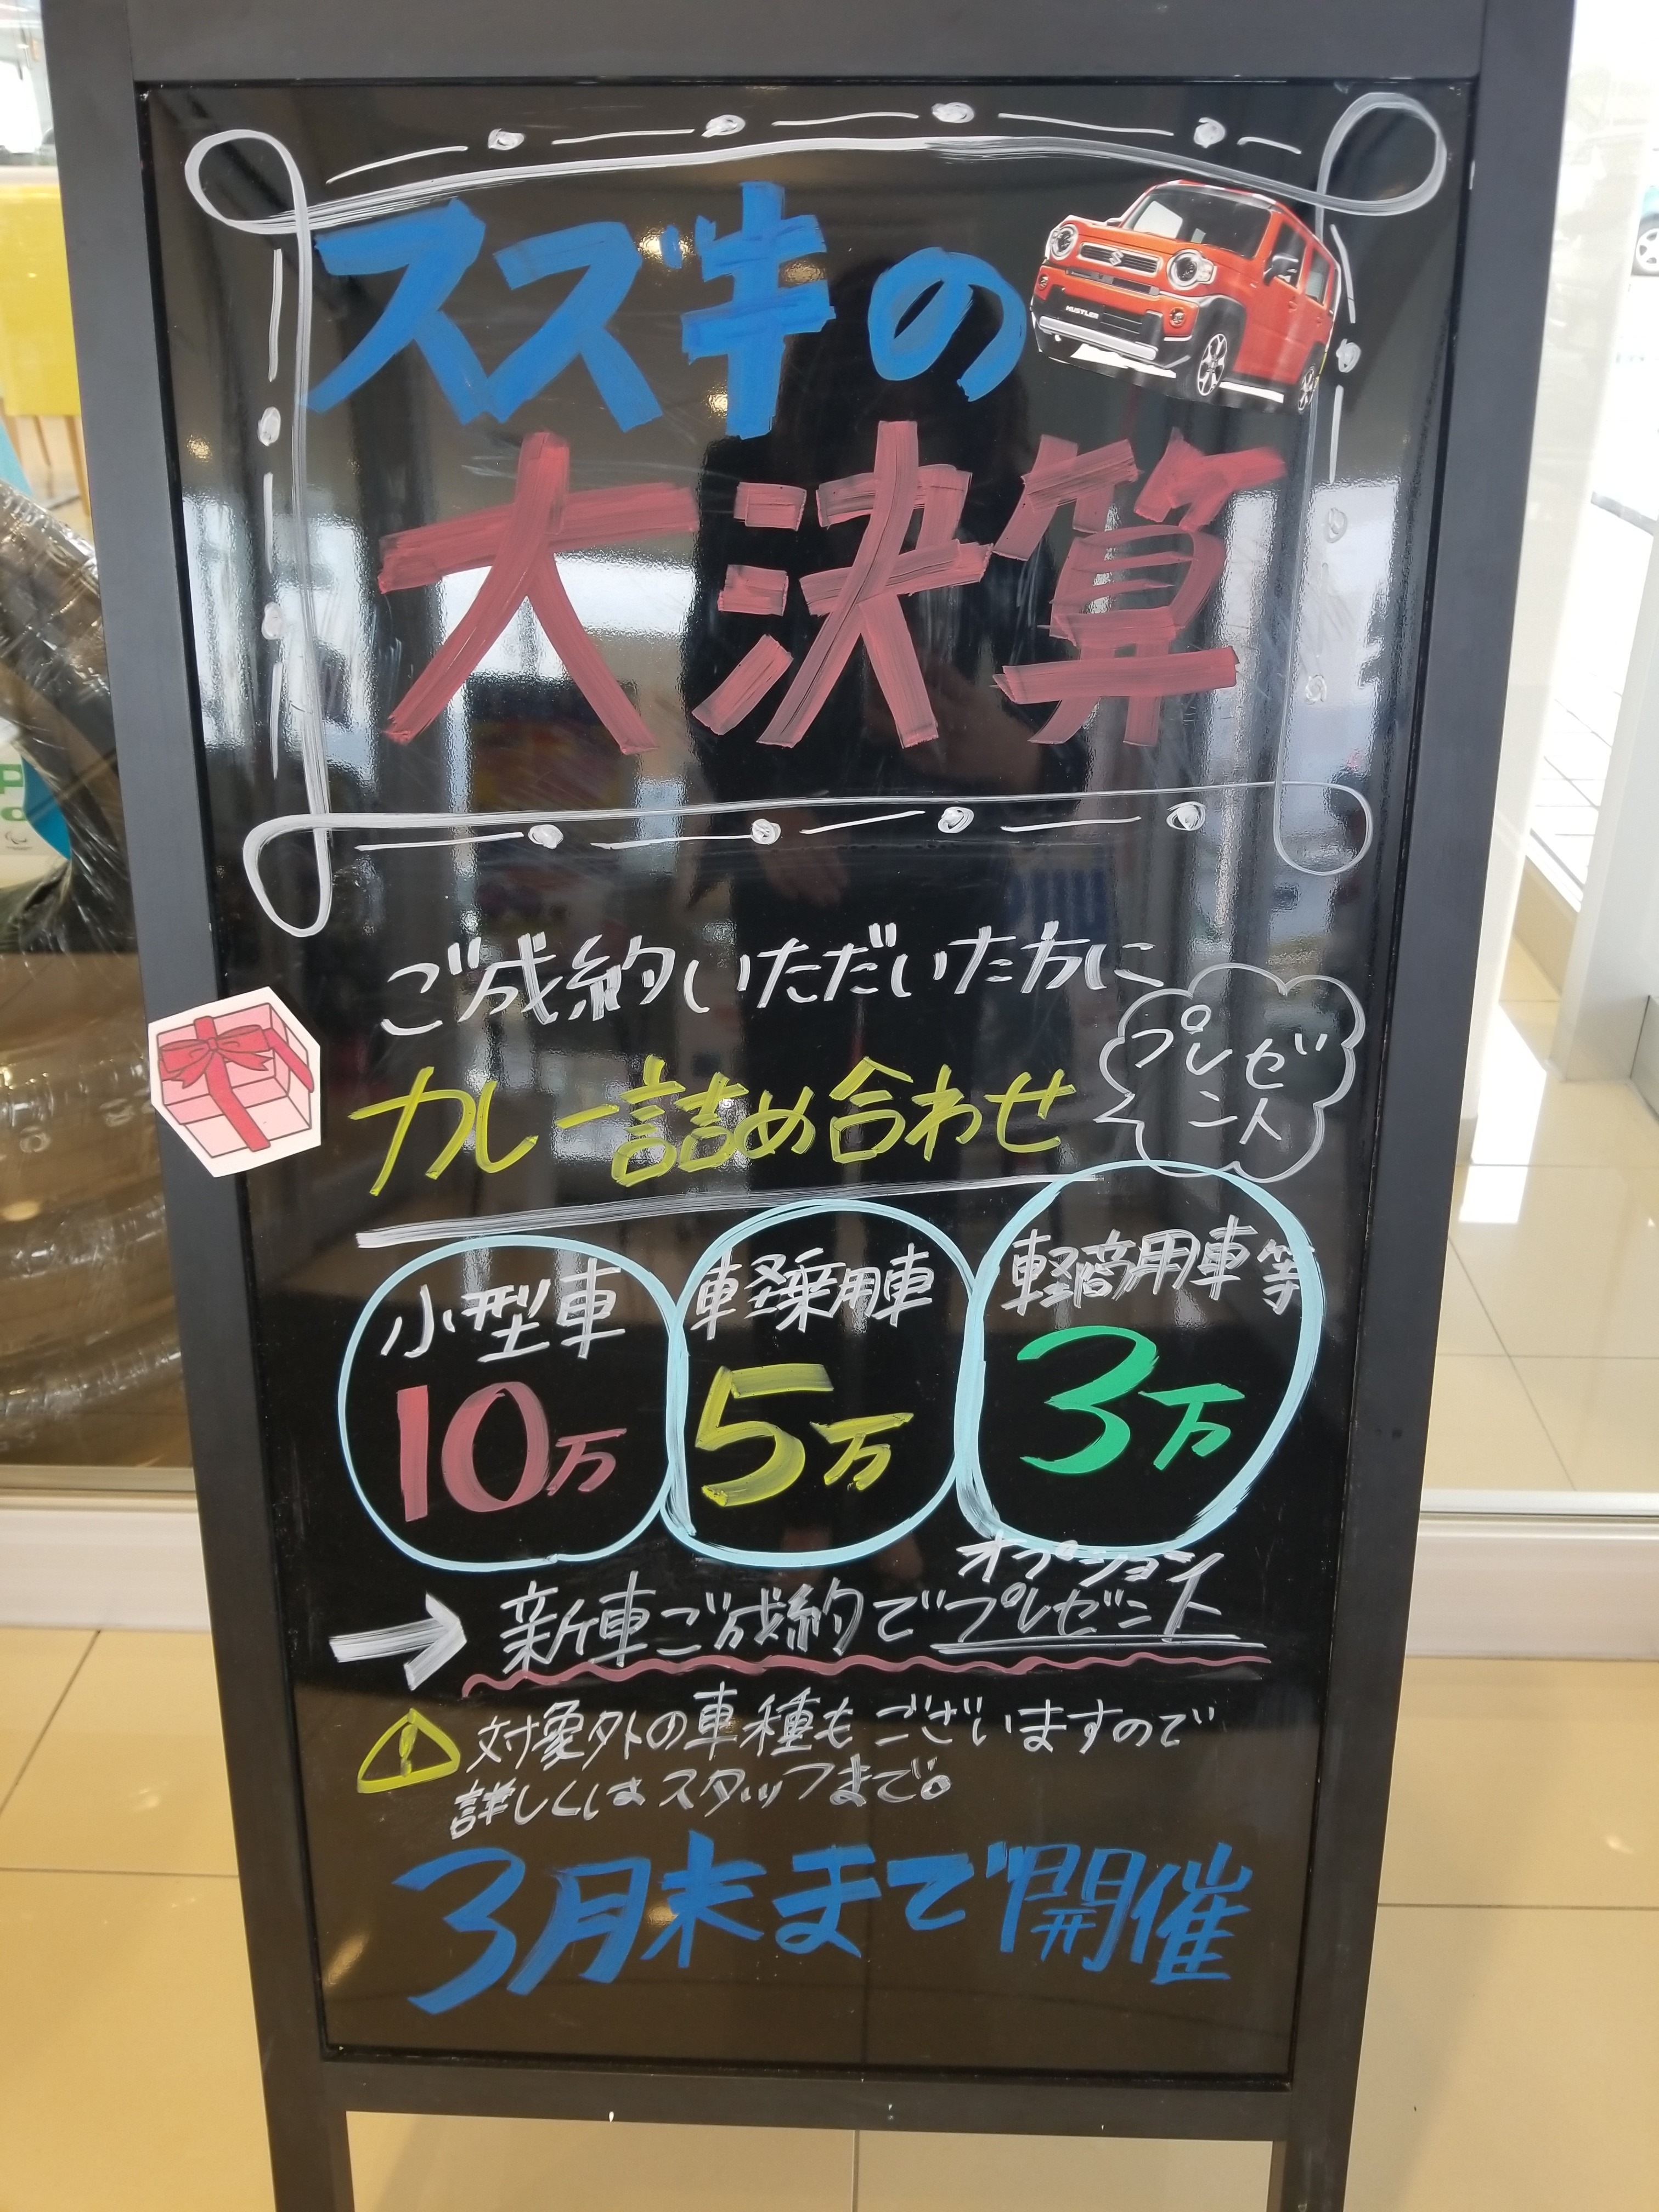 スズキの
HUSTLER
大決算
ご成約いただいた方に
カレー詰め合わせ
プレゼ
ント
小型車
10万
軽乗用車
5万
軽商用車等
3万
オプション
→新車ご成約でプレゼント
対象外の車種もございますので
詳しくはスタッフまで。
3月末まで開催